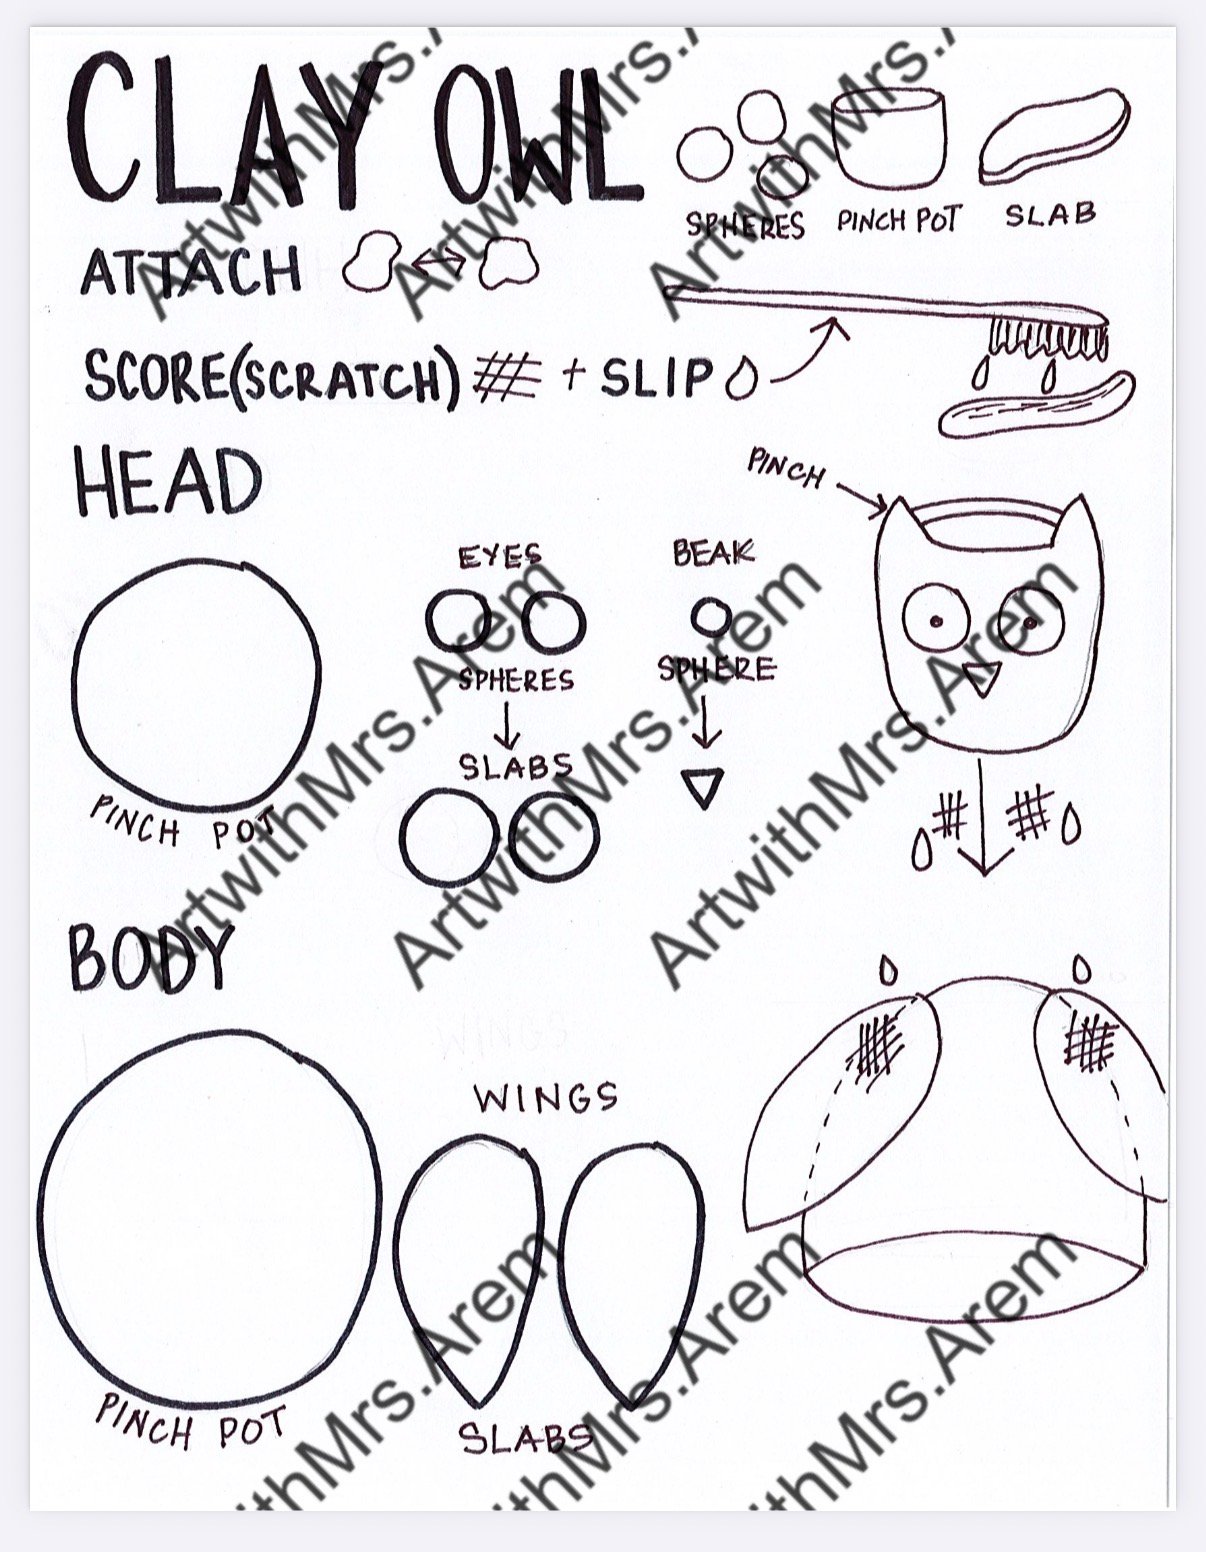 CLAY OWL
SPHERES
PINCH POT
SLAB
ATTACH
SCORE(SCRATCH) + SLIP
HEAD
PINCH
EYES
SPHERES
SLABS
BEAK
SPHERE
PINCH POT
BODY
WINGS
PINCH POT
SLABS
ArtwithMrs.A
ArtwithMrs.A
ArtwithMrs.A
ArtwithMrs.Arem
ArtwithMrs.Arem
ArtwithMrs.Arem
ithMrs.Arem
ithMrs.Arem
ithMrs.Arem